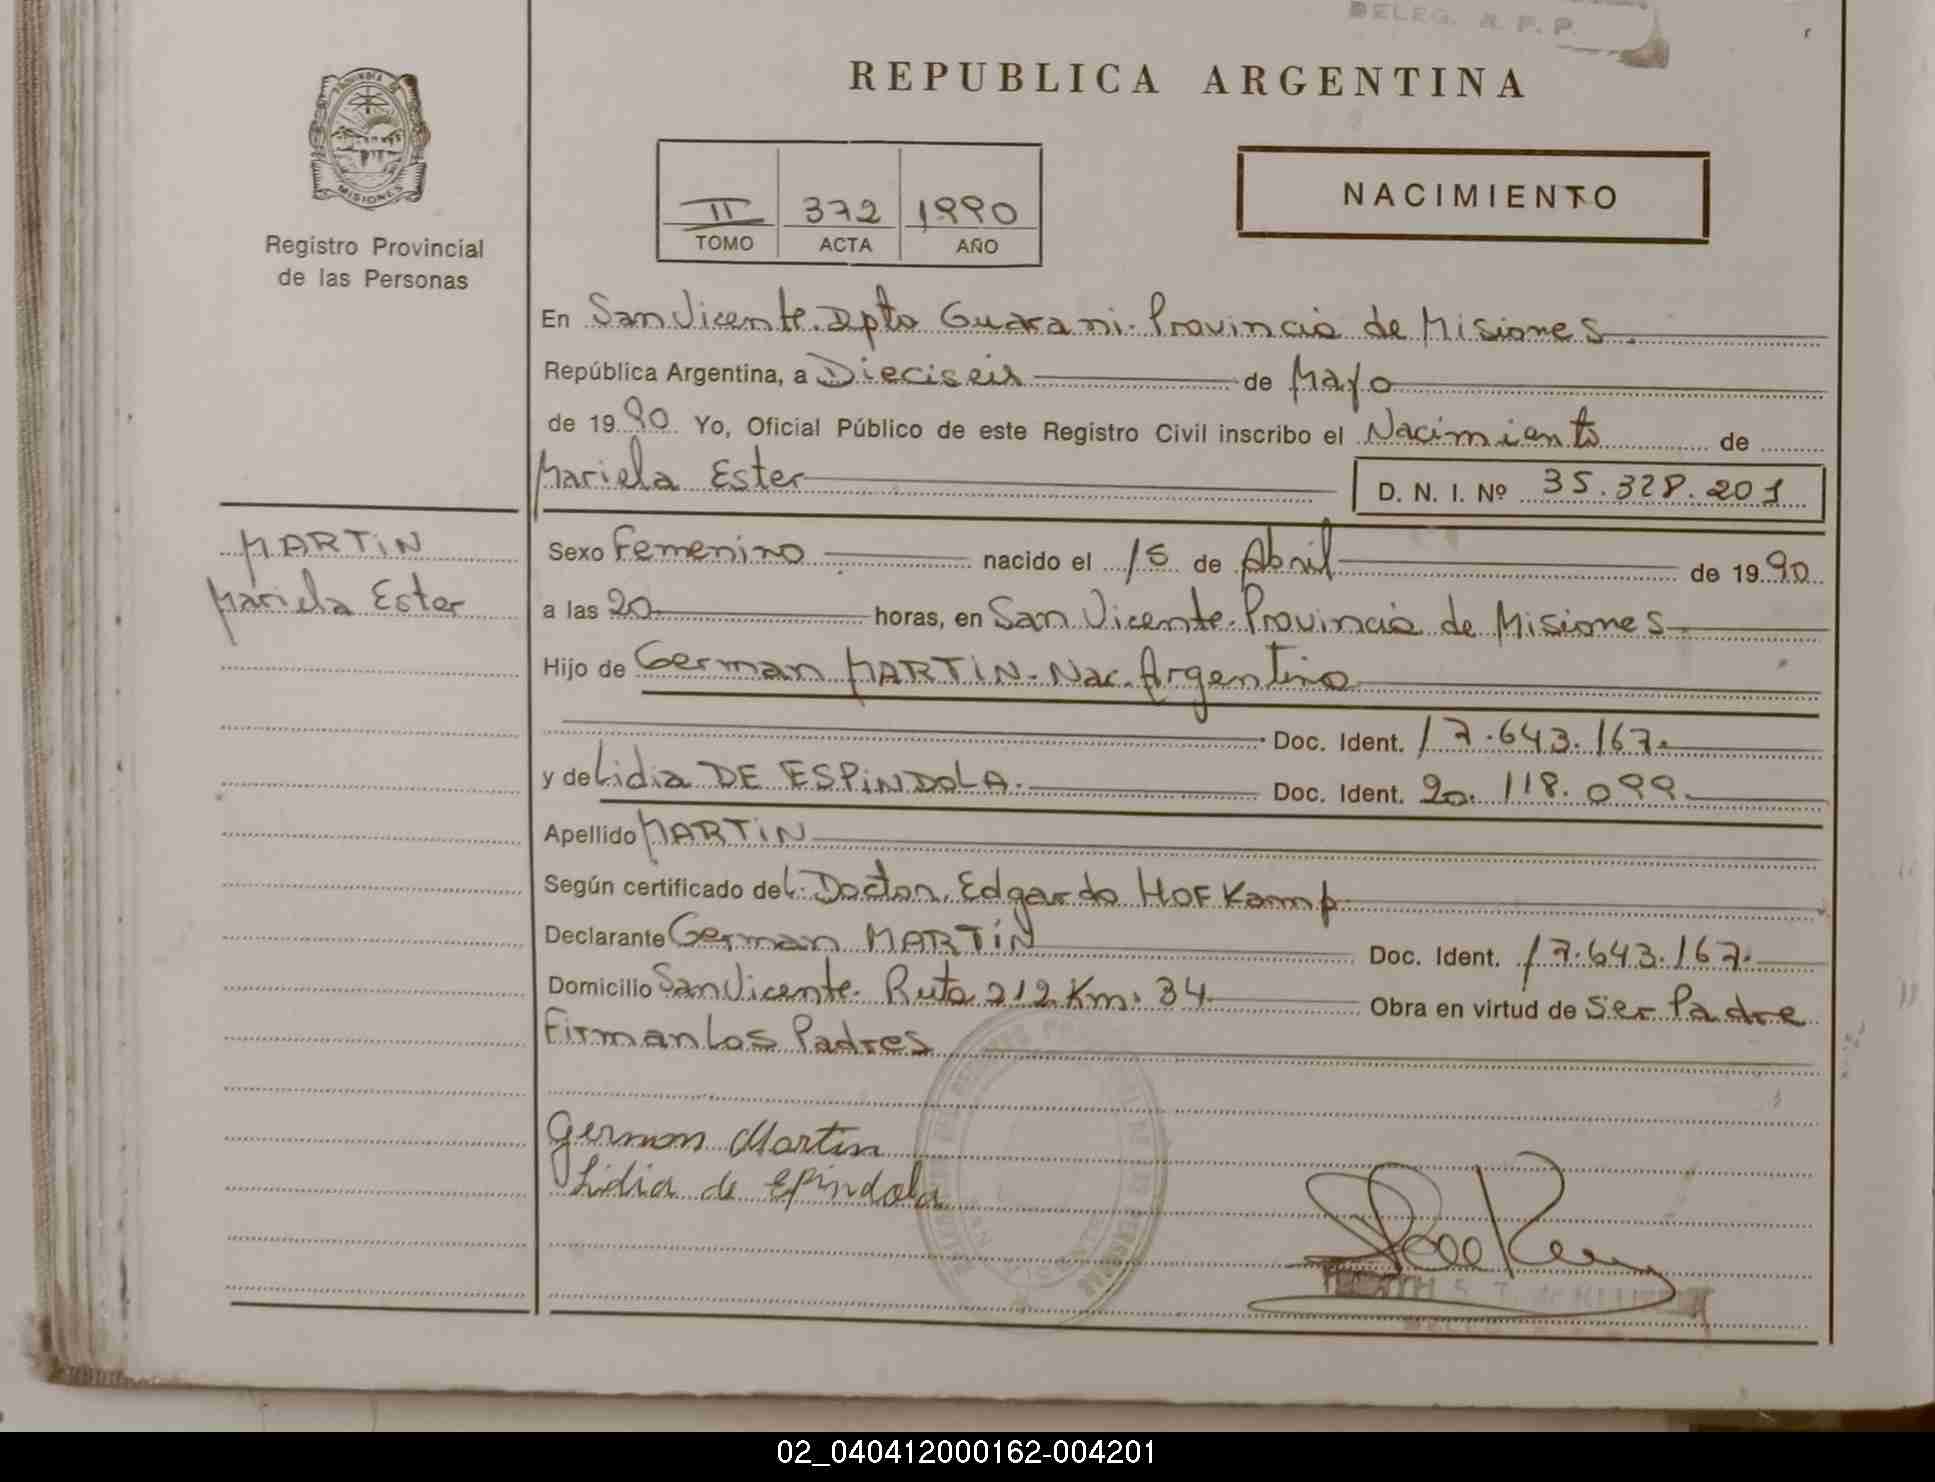 DELEG. R. P. P.
REPUBLICA ARGENTINA
PROVINCIA DE
MISIONES
Registro Provincial
de las Personas
II 372 1990
TOMO ACTA AÑO
NACIMIENTO
En San Vicente. Dpto Guarani. Provincia de Misiones.
República Argentina, a Dieciseis de Mayo
de 1990 Yo, Oficial Público de este Registro Civil inscribo el Nacimiento de
Mariela Ester D. N. I. Nº 35.328.201
MARTiN
Mariela Ester
Sexo Femenino nacido el 15 de Abril de 1990
a las 20 horas, en San Vicente. Provincia de Misiones
Hijo de German MARTiN. Nac. Argentino
Doc. Ident. 17.643.167.
y de Lidia DE ESPiNDOLA. Doc. Ident. 20.118.099.
Apellido MARTiN
Según certificado del. Doctor. Edgardo HOFKamp
Declarante German MARTiN Doc. Ident. 17.643.167.
Domicilio San Vicente. Ruta 212 Km: 34 Obra en virtud de Ser Padre
Firman Los Padres
German Martin
Lidia de Epindola
02_040412000162-004201